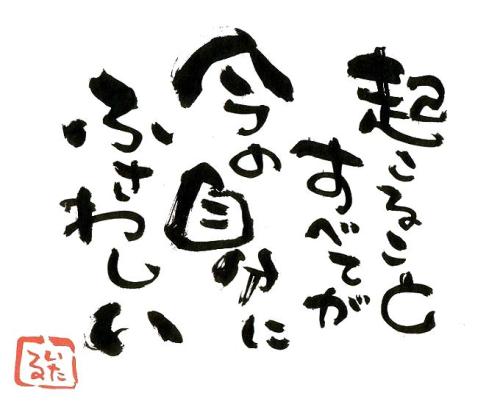 起こること
すべてが
今の自分に
ふさわしい
いた
る